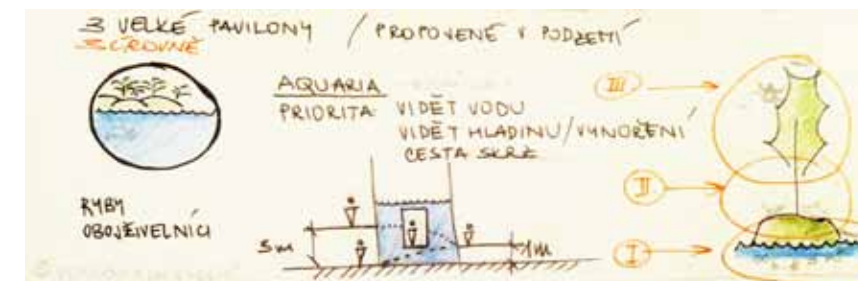 3 VELKÉ PAVILONY / PROPOVENÉ V PODZEMÍ
3 ÚROVNĚ
AQUARIA
PRIORITA: VIDĚT VODU
VIDĚT HLADINU/VYNOŘENÍ
CESTA SKRZ
RYBY
OBOJŽIVELNÍCI
5m
1m
III
II
I